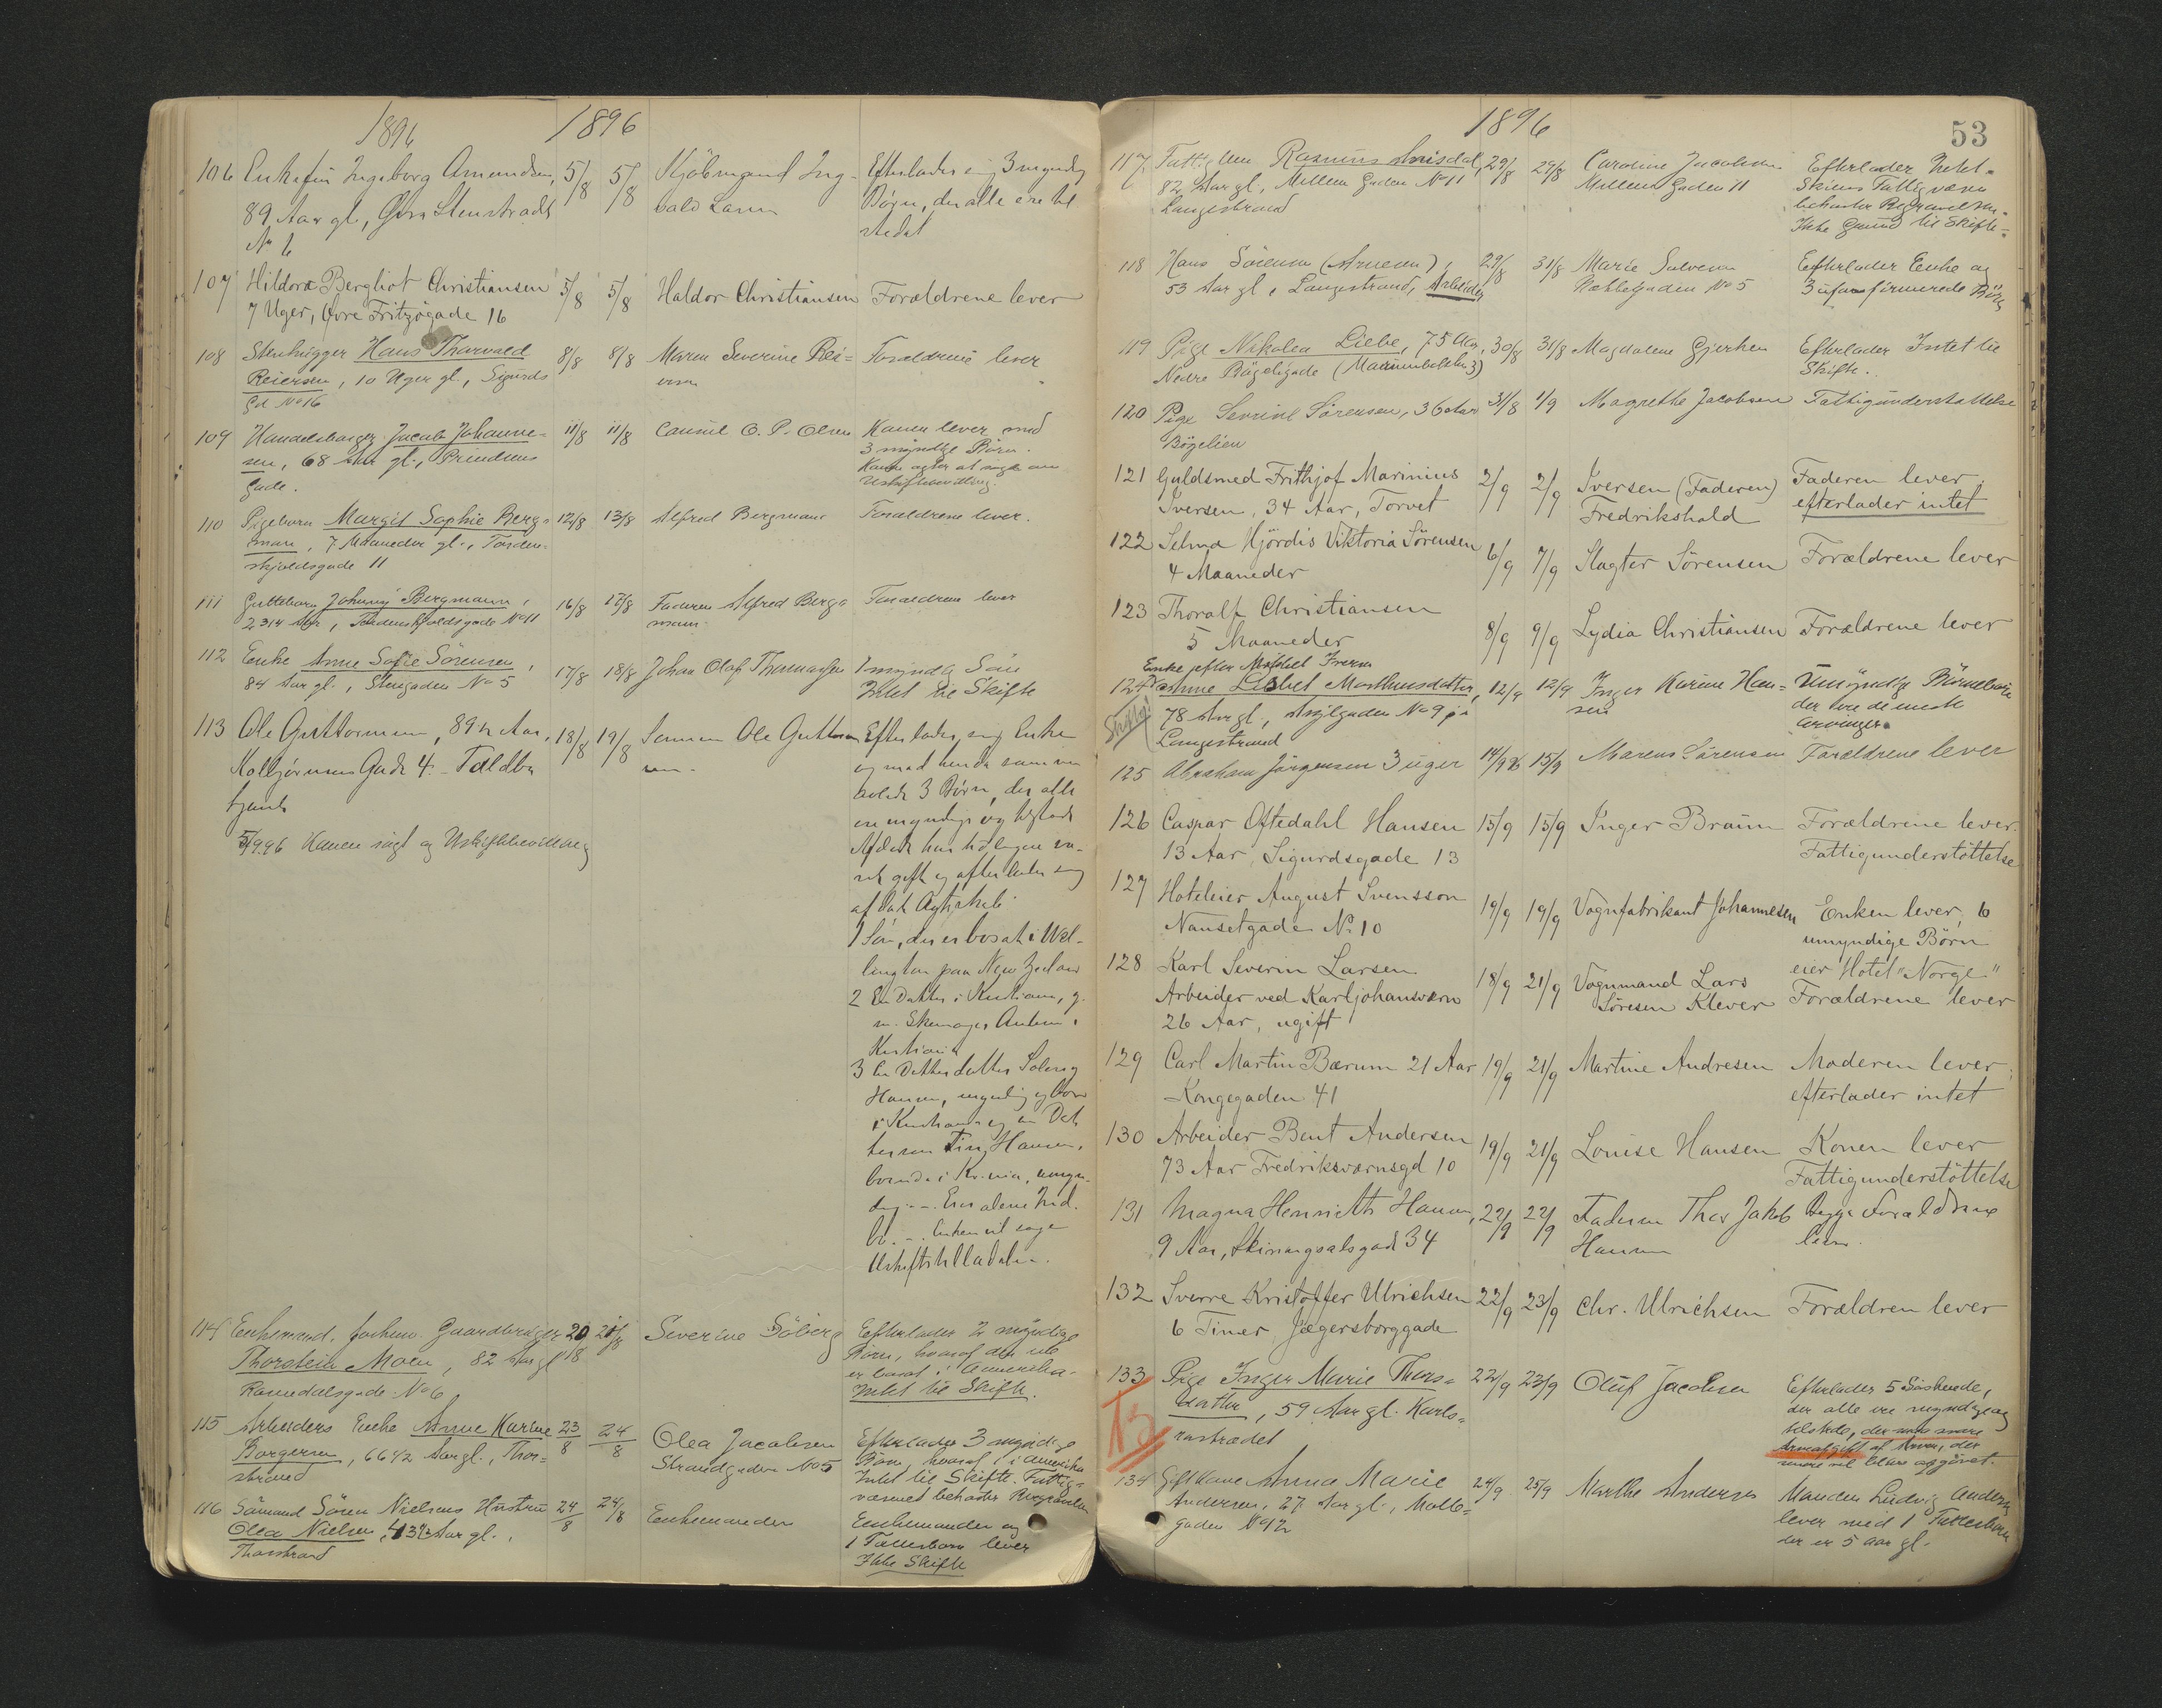 1896 1896
106 Enkefru Ingeborg Amundsen, 5/8 5/8 Kjöbmand Ing- Efterlader sig 3 myndig
89 Aar gl, Øvre bald Larsen Børn, der alle ere til
No 6 stede
107 Hildora Bergliot Christiansen 5/8 5/8 Haldor Christiansen Forældrene lever
7 Uger, Øvre Fritzögade 16
108 Stenhugger Hans Tharvald 8/8 8/8 Maren Severine Rei= Forældrene lever
Reiersen, 10 Uger gl., Sigurds ersen
Gd No 16
109 Handelsborger Jacob Johanne= 11/8 11/8 O. P. Olsen Konen lever med
sen, 68 Aar gl., Prindsens 3 myndige Börn.
Gade. Konen agter at søge om
Uskiftebevilling.
110 Pigebarn Margit Sophie Berg= 12/8 13/8 Alfred Bergmann Forældrene lever.
man, 7 Maaneder gl., Torden=
skjoldsgade 11
111 Guttebarn Johnny Bergmann, 16/8 17/8 Faderen Alfred Berg= Forældrene lever
2 3/4 Aar, Tordenskjoldsgade No 11 mann.
112 Enke Anne Sofie Sörensen, 17/8 18/8 Johan Olaf Thomassen 1 myndig Sön
84 Aar gl., Stengaden No 5 Intet til Skifte
113 Ole Guttormsen, 89 1/2 Aar, 18/8 19/8 Sønnen Ole Guttorm Efterlader sig Enke
Kolbjörnsens Gade 4. - Toldbe sen. og med hende sammen
tjent avlede 3 Børn, der alle
ere myndige og tilstede
5/9.96 Konen søgt og Uskiftebevilling Afdøde har tidligere væ-
ret gift og efterlader sig
af dette Ægteskab
1 Søn, der er bosat i Wel-
lington paa New Zeeland
2 En Datter i Kristiania, g.
m. Skomager
Kristiania
3 En Datterdatter Solveig
Hansen, myndig og bor
i Kristiania og en Dat
tersøn Hansen,
boende i Kr.nia, umyn-
dig. - Eier alene Ind
bo. - Enken vil søge
Uskiftetilladelse.
114 Enkemand, forhenv. Gaardbruger 20/8 21/8 Severine Söberg Efterlader 2 myndige
Thorstein Moen, 82 Aar gl Börn, hvoraf den ene
Ramdalsgade No 6 er bosat i Amerika.
Intet til Skifte.
115 Arbeiders Enke Anne Karine 23/8 24/8 Olea Jacobsen Efterlader 3 myndige
Borgersen, 66 1/2 Aar gl., Thor= Strandgaden No 5 Börn, hvoraf 1 i Amerika
strand Intet til Skifte. Fattig=
væsenet bekoster Begravelsen
116 Sömand Sören Nielsens Hustru 24/8 24/8 Enkemanden Enkemanden og
Olea Nielsen, 43 1/2 Aar gl., 1 Fællesbarn lever
Thorstrand Ikke Skifte
1896 53
117 Rasmus Amisdal, 29/8 29/8 Caroline Jacobsen Efterlader Intet.
82 Aar gl., Mellem Gaden No 11 Mellem Gaden 11 Skiens Fattigvæsen
Langestrand bekoster Begravelsen.
Ikke Grund til Skifte.
118 Hans Sörensen (Arnesen), 29/8 31/8 Marie Salvesen Efterlader Enke og
53 Aar gl., Langestrand, Arbeider No 5 3 Börn
119 Pige Nikolea Liebe, 75 Aar, 30/8 31/8 Magdalene Gjerken Efterlader Intet til
Nedre Bögeligade Skifte.
120 Pige Severine Sörensen, 36 Aar 31/8 1/9 Magrethe Jacobsen Fattigunderstøttelse
Bögelien
121 Guldsmed Frithjof Marinius 2/9 2/9 Iversen (Faderen) Faderen lever,
Iversen, 34 Aar, Torvet Fredrikshald efterlader intet
122 Selma Hjördis Viktoria Sörensen 6/9 7/9 Slagter Sörensen Forældrene lever
4 Maaneder
123 Thoralf Christiansen 8/9 9/9 Lydia Christiansen Forældrene lever
5 Maaneder
Enke efter Iversen
124 Anne Lisbet Mathisdatter, 12/9 12/9 Inger Karine Han= Umyndige Börnebörn
78 Aar gl., Asylgaden No 9 på sen der ere de eneste
Skifte! Langestrand arvinger.
125 Abraham Jörgensen 3 uger 14/9 96 15/9 Maren Sörensen Forældrene lever
126 Caspar Oftedahl Hansen 15/9 15/9 Inger Braum Forældrene lever.
13 Aar, Sigurdsgade 13 Fattigunderstöttelse
127 Hoteleier August Svensson 19/9 19/9 Vognfabrikant Johannesen Enken lever, 6
Nansetgade No 10 umyndige Börn
128 Karl Severin Larsen 18/9 21/9 Vognmand Lars eier Hotel "Norge"
Arbeider ved Karljohansværn Söresen Klever Forældrene lever
26 Aar, ugift
129 Carl Martin Bærum 21 Aar 19/9 21/9 Martine Andresen Moderen lever;
Kongegaden 41 efterlader intet
130 Arbeider Bent Andersen 19/9 21/9 Louise Hansen Konen lever
73 Aar Fredriksværnsgd 10 Fattigunderstöttelse
131 Magna Henriette Hansen, 22/9 22/9 Faderen Thor Jakob Begge Forældrene
9 Aar, Skiringsalsgade 34 Hansen lever.
132 Sverre Kristoffer Ulrichsen 22/9 23/9 Chr. Ulrichsen Forældren lever
6 Timer, Jægersborggade
133 Pige Inger Marie Thors= 22/9 23/9 Oluf Jacobsen Efterlader 5 Söskende,
datter, 59 Aar gl. Karls= der alle ere myndige og
rostrædet tilstede, der maa svare
Arveafgift af Arven, der
senere vil blive opgivet.
134 Gift Kone Anna Marie 24/9 25/9 Marthe Andersen Manden Ludvig Andersen
Andersen, 67 Aar gl., Molle= lever med 1 Fællesbarn
gaden No 2 der er 5 Aar gl.